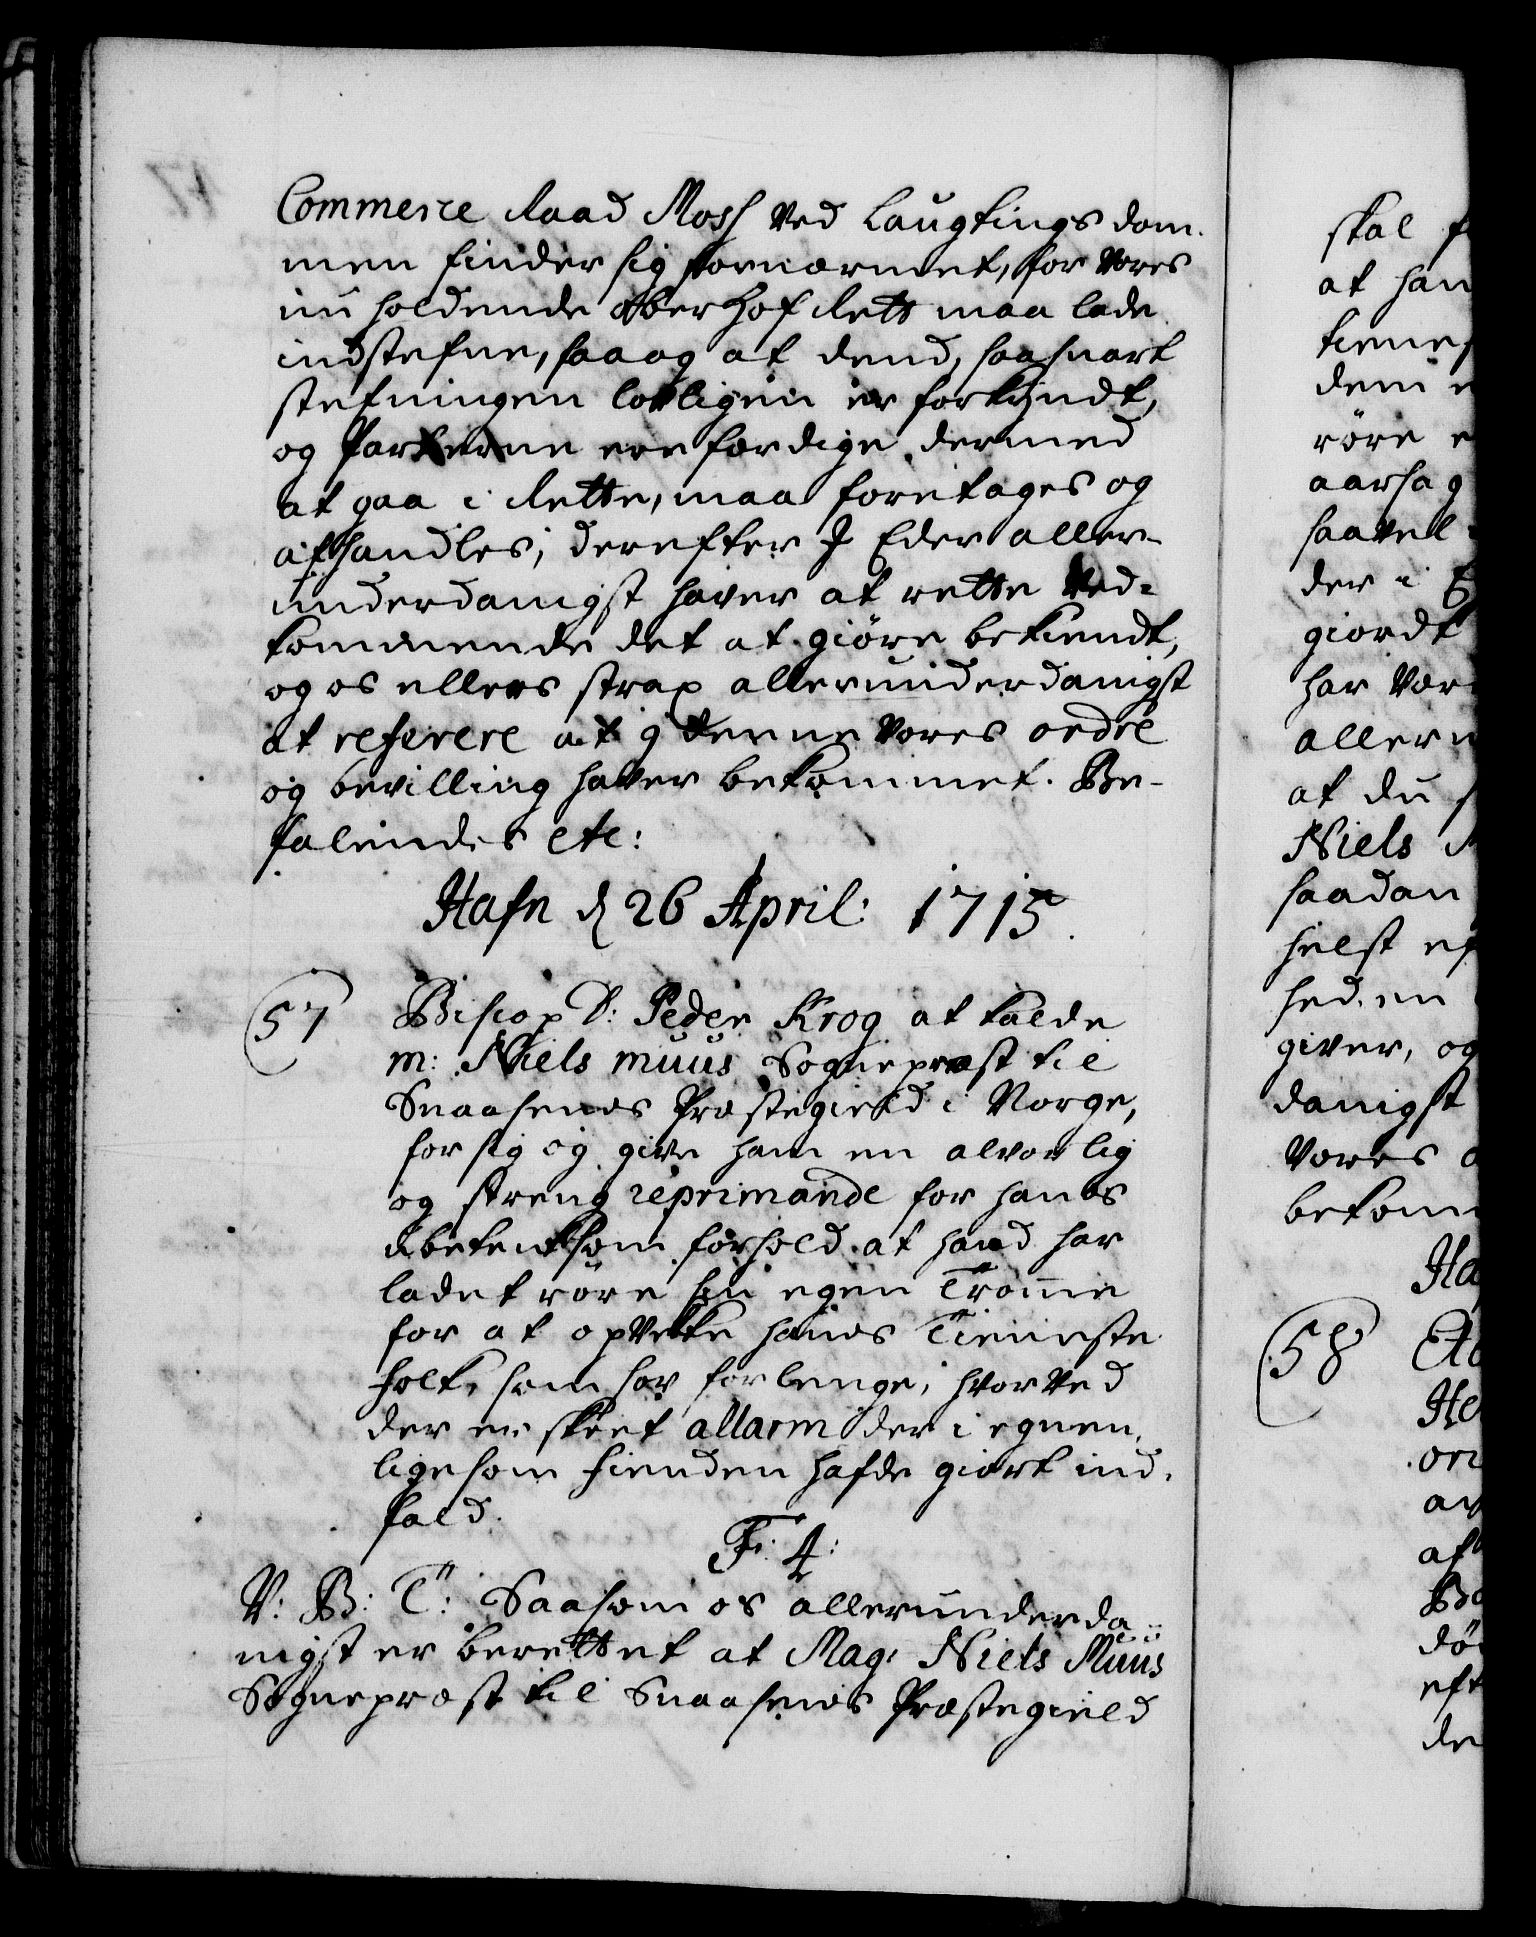 Commerce Raad Moss ved Laugtings dom-
men finder sig fornærmet, for Vores
nu holdende Ober Hof Rett maa lade
indstefne, saa og at dend, saa snart
stefningen lovligen er forkyndt,
og Parterne ere færdige dermed
at gaa i Rette, maa foretages og
afhandles; derefter I Eder aller-
underdanigst haver at rette Ved-
kommende det at giöre bekiendt,
og os ellers strax allerunderdanigst
at referere at I denne Vores ordre
og bevilling haver bekommet. Be-
falendes etc:
Hafn d 26 April: 1715.
57 Biscop D: Peder Krog at kalde
m: Niels muus Sogneprest til
Snaasenes Præstegield i Norge,
for sig og give ham en alvorlig
og streng reprimande for hans
ubetenksom forhold at hand har
ladet röre sin egen Tromme
for at opvekke hands Tieneste
folk, som sov for lenge, hvorved
der er skeet allarm der i egnen,
ligesom fienden hafde giort ind-
fald.
F: 4:
V: B: T: Saasom os allerunderda-
nigst er berettet at Mag: Niels Muus
Sogneprest til Snaasenes Præstegield
skal
at han
tienes
dem
röre
aarsag
saavel
der i
giordt
har
allern
at du
Niels
saadan
helst
hed, en
giver, og
danigst
Vores
bekom
Ha
58